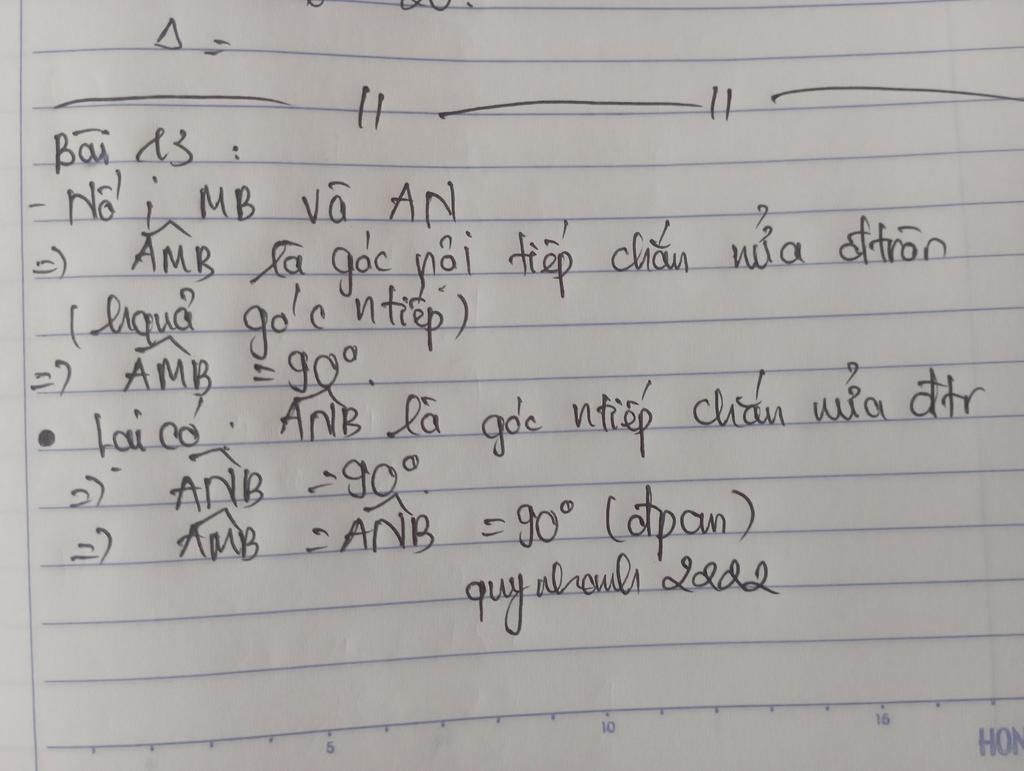 Δ =
Bài 13 :
- Nối MB và AN
=> AMB là góc nội tiếp chắn nửa đtròn
(hquả góc ntiếp)
=> AMB = 90°.
• Lại có: ANB là góc ntiếp chắn nửa đtr
=> ANB = 90°.
=> AMB = ANB = 90° (đpcm)
quynhanh 2222
5 10 15
HON